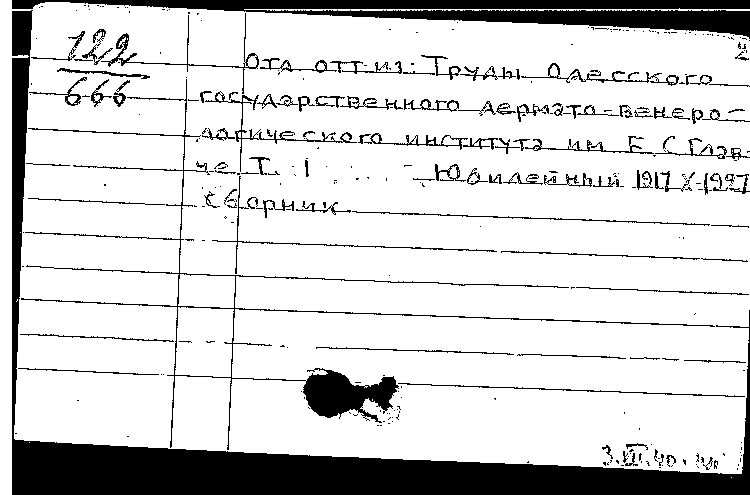 2
122
666
Отд отт из: Труды Одесского
государственного дермато-венеро-
логического института им Е. С Глав-
че Т. 1 Юбилейный 1917 X-1927
сборник
3.VII.40.